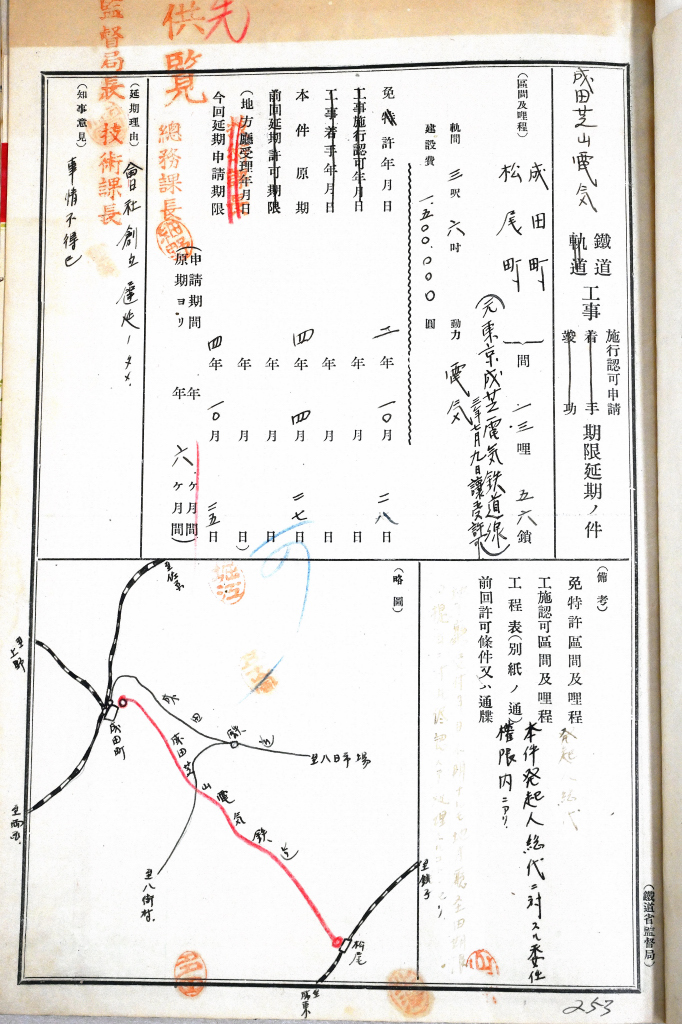 成田芝山電気
鐵道
軌道
工事
施行認可申請
着手
竣功
期限延期ノ件
(區間及哩程)
成田町
松尾町
間
一三哩
五六鎖
(元東京成芝電気鉄道線)
三年七月九日讓受許可
軌間 三呎六吋 動力 電気
建設費 一、五〇〇、〇〇〇圓
免特許年月日 二年一〇月二八日
工事施行認可年月日 年月日
工事着手年月日 年月日
本件原期 四年四月二七日
前回延期許可期限 年月日
(地方廳受理年月日 年月日)
今回延期申請期限 四年一〇月二五日
(申請期間 年六ヶ月間
原期ヨリ 年ヶ月間)
(延期理由)
會社創立遲延ノタメ
(知事意見)
事情不得已
先
供覧
監督局長
技術課長
總務課長
(備考)
免特許區間及哩程
工施認可區間及哩程
工程表(別紙ノ通)
前回許可條件又ハ通牒
本件発起人総代ニ対スル委任
權限内ニアリ
(略圖)
至佐原
至上野
成田町
成田鉄道
至八日市場
成田芝山電気鉄道
至八街村
至銚子
松尾
(鐵道省監督局)
253